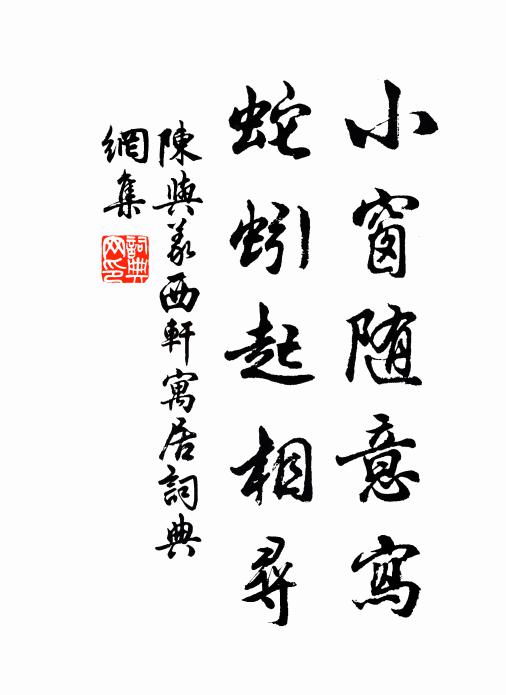 小窗随意寫
蛇蚓起相尋
陳與義西軒寓居詞典
網集
詞典
网印